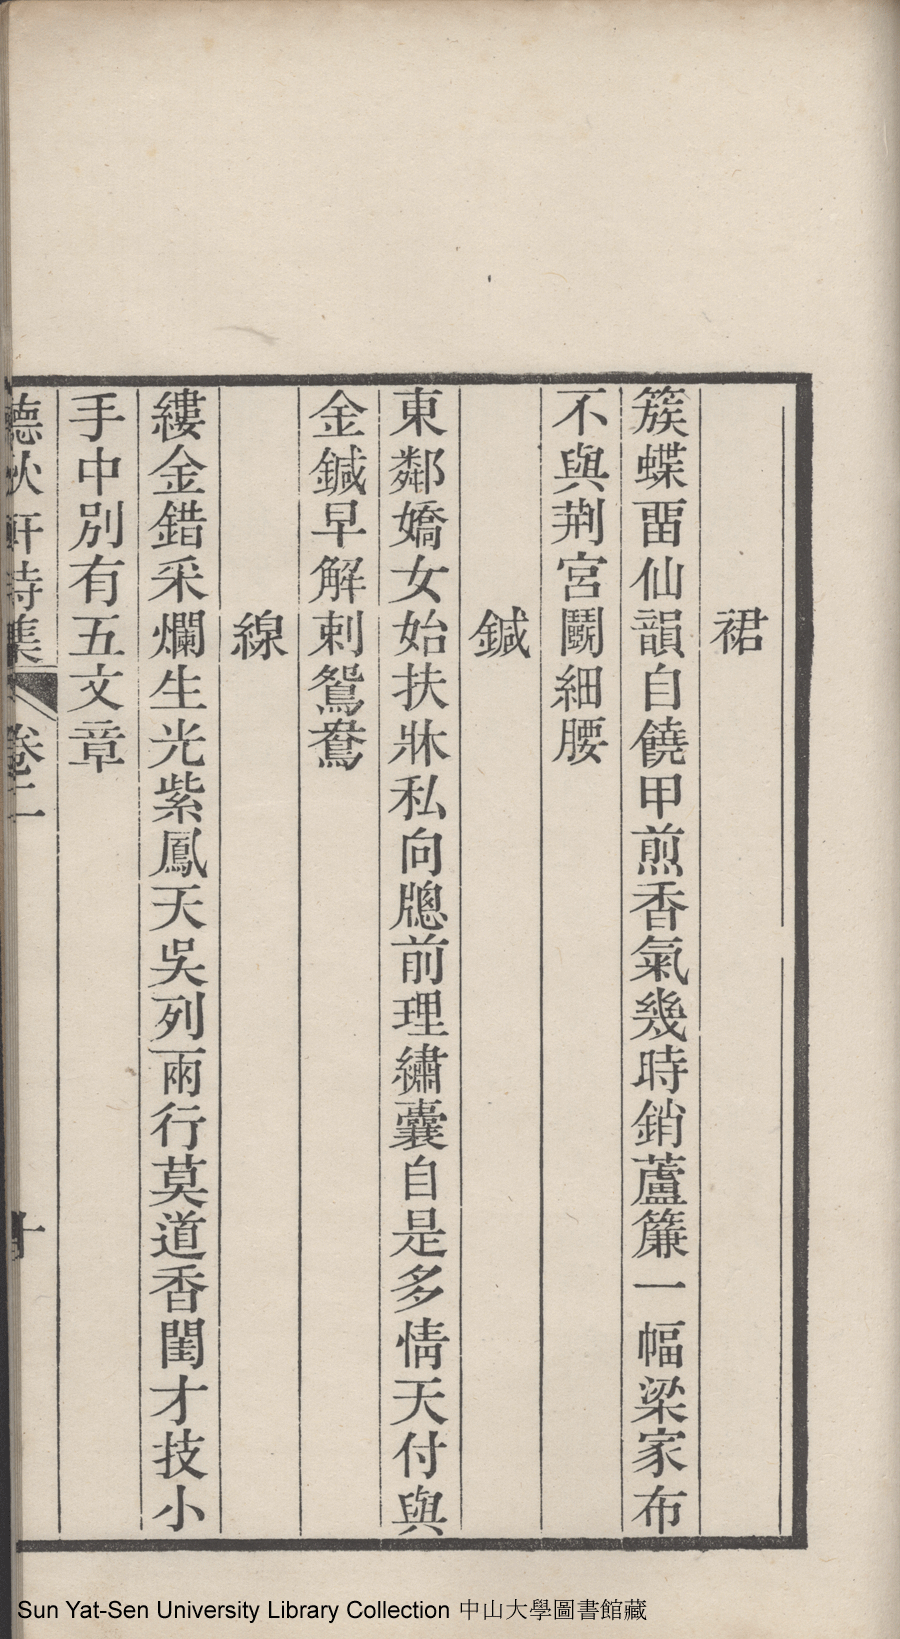 裙
簇蝶畱仙韻自饒甲煎香氣幾時銷蘆簾一幅梁家布
不與荆宮鬭細腰
鍼
東鄰嬌女始扶牀私向牕前理繡囊自是多情天付與
金鍼早解刺鴛鴦
線
縷金錯采爛生光紫鳳天吳列兩行莫道香閨才技小
手中別有五文章
軒詩集 卷二 十
Sun Yat-Sen University Library Collection 中山大學圖書館藏